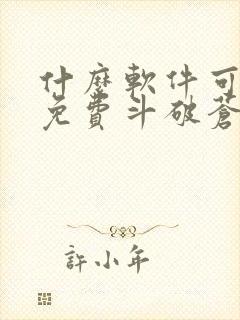 什麼軟件可
免費斗破蒼
許小年